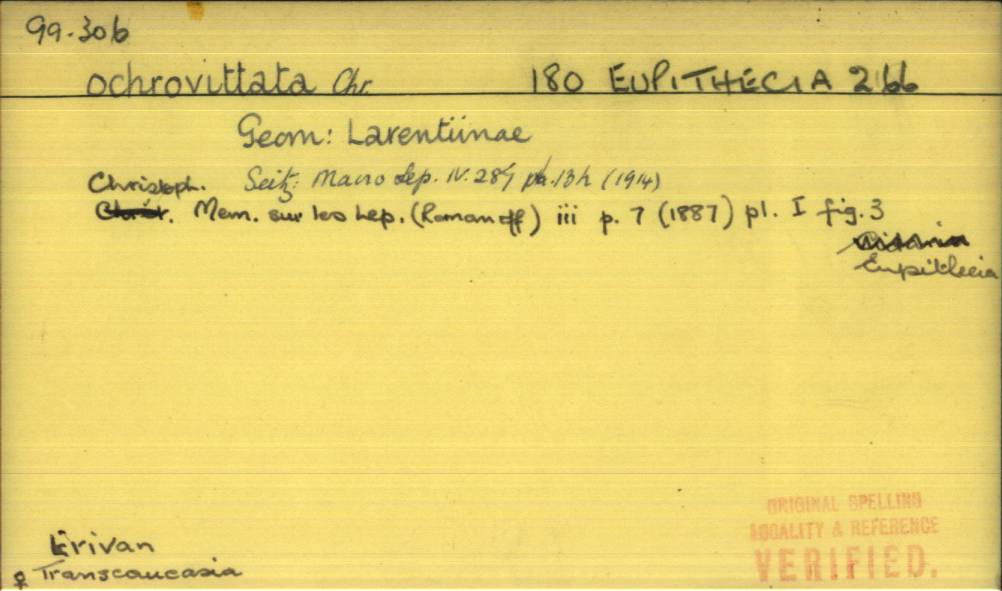 99.306
ochrovittata Chr. 180 EUPITHECIA 2166
Geom: Larentiinae
Christoph. Seitz: Macro Lep. IV. 287 pl. 13h (1914)
Mem. sur les Lep. (Romanoff) iii p. 7 (1887) pl. I fig. 3
Eupithecia
ORIGINAL SPELLING
LOCALITY & REFERENCE
VERIFIED.
Erivan
♀ Transcaucasia